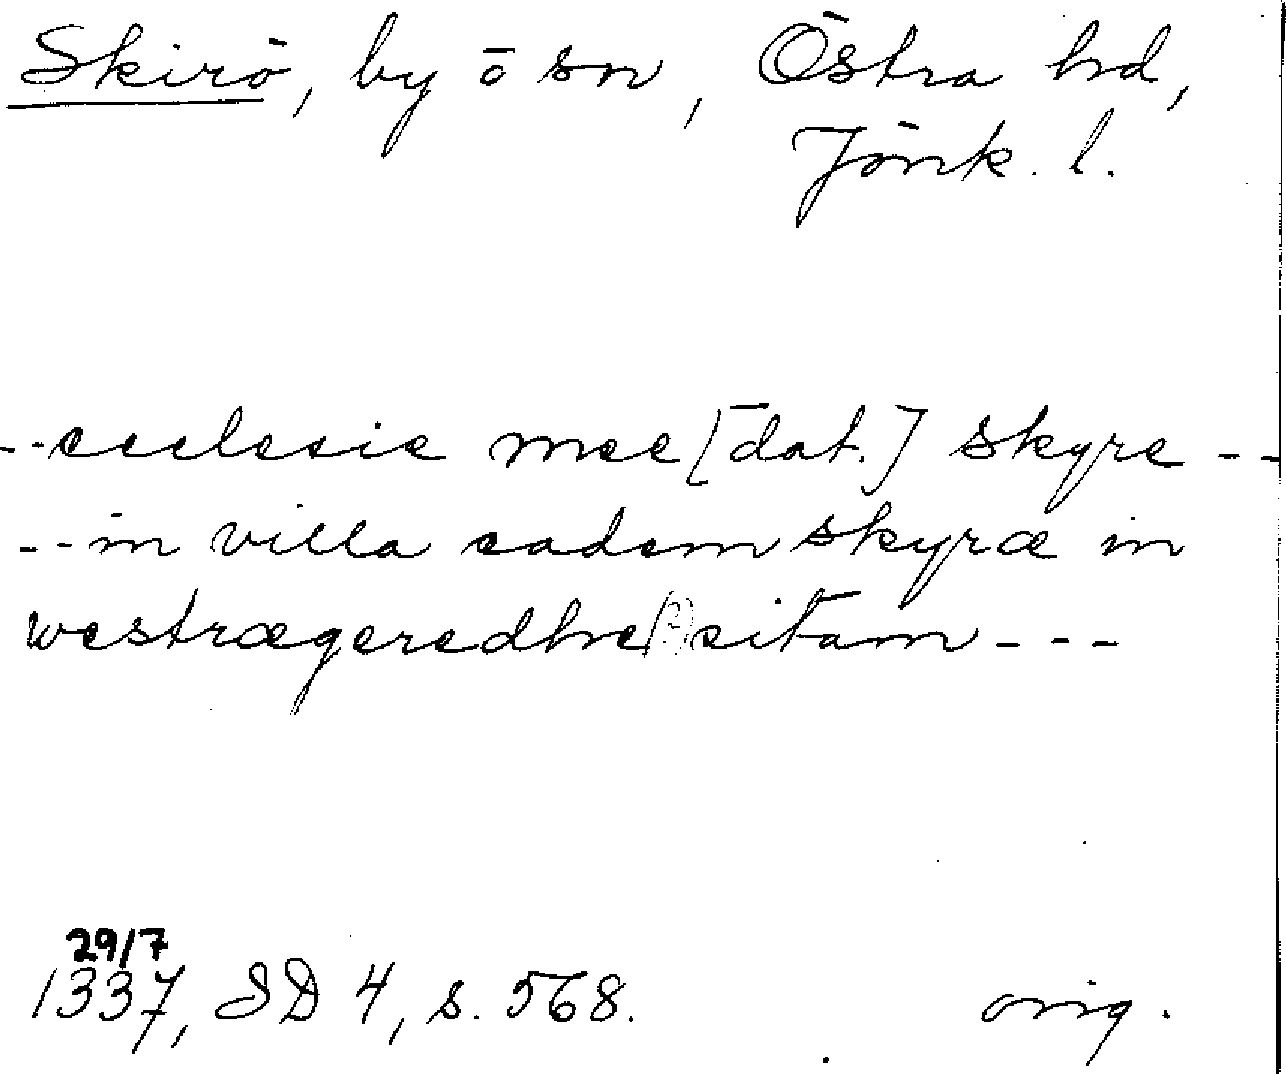 Skirö, by o sn, Östra hd,
Jönk. l.
--ecclesie mee [dat.] skyre --
--in villa eadem skyræ in
westrægeredhe (?) sitam ---
29/7
1337, SD 4, s. 568. orig.